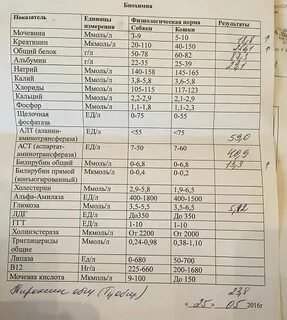 Биохимия
Показатель Единицы измерения Физиологическая норма Результаты
Собаки Кошки
Мочевина Ммоль/л 3-9 5-10 ↑
Креатинин Мкмоль/л 20-110 40-150 ↑
Общий белок г/л 50-78 60-82
Альбумин г/л 22-35 25-39
Натрий Ммоль/л 140-158 145-165
Калий Ммоль/л 3,8-5,6 3,6-5,8
Хлориды Ммоль/л 105-115 117-123
Кальций Ммоль/л 2,2-2,9 2,1-2,9
Фосфор Ммоль/л 1,1-1,8 1,1-2,3
Щелочная фосфатаза ЕД/л 0-75 0-55
АЛТ (аланин-аминотрансфераза) ЕД/л <55 <75
АСТ (аспартат-аминотрансфераза) ЕД/л 7-50 7-60
Билирубин общий Мкмоль/л 0-6,8 0-6,8 13,3 ↑
Билирубин прямой (конъюгированный) Мкмоль/л 0-0,4 0-0,2
Холестерин Ммоль/л 2,9-5,5 1,9-6,5
Альфа-Амилаза ЕД/л 400-1800 400-1500
Глюкоза Ммоль/л 3,5-5,5 3,5-6,5
ЛДГ ЕД/л До350 До 350
ГГТ ЕД/л 1-10 1-10
Холинэстераза Мкмоль/л От 2200 От 2000
Триглицериды общие Ммоль/л 0,24-0,98 0,38-1,10
Липаза ЕД/л 0-680 50-700
В12 Нг/л 225-660 200-1680
Мочевая кислота Мкмоль/л 9-100 До 150
23,8
« 25 » 05 2016г